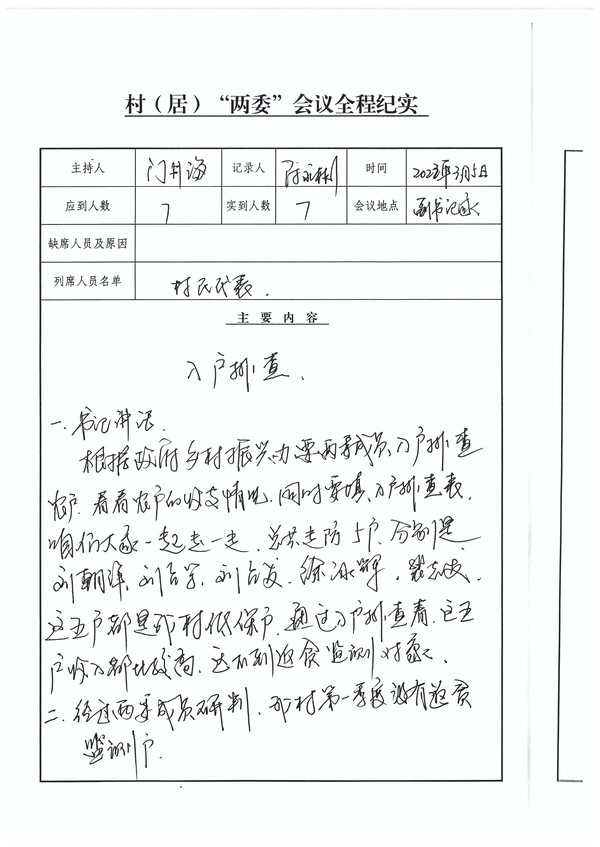 村（居）“两委”会议全程纪实
主持人 门井海 记录人 时间 2023年3月5日
应到人数 7 实到人数 7 会议地点 副书记家
缺席人员及原因
列席人员名单 村民代表.
主要内容
入户排查.
一.书记讲话.
根据政府乡村振兴办要两委成员入户排查
农户.看看农户的收支情况,同时要填入户排查表.
咱们大家一起走一走.总共走访5户.分别是
刘朝洋,刘占军,刘占友,徐冰辉,
这五户都是我村低保户.通过入户排查看.这五
户收入都比较高.达不到返贫监测对象.
二.经过两委成员研判.我村第一季度没有返贫
监测户.